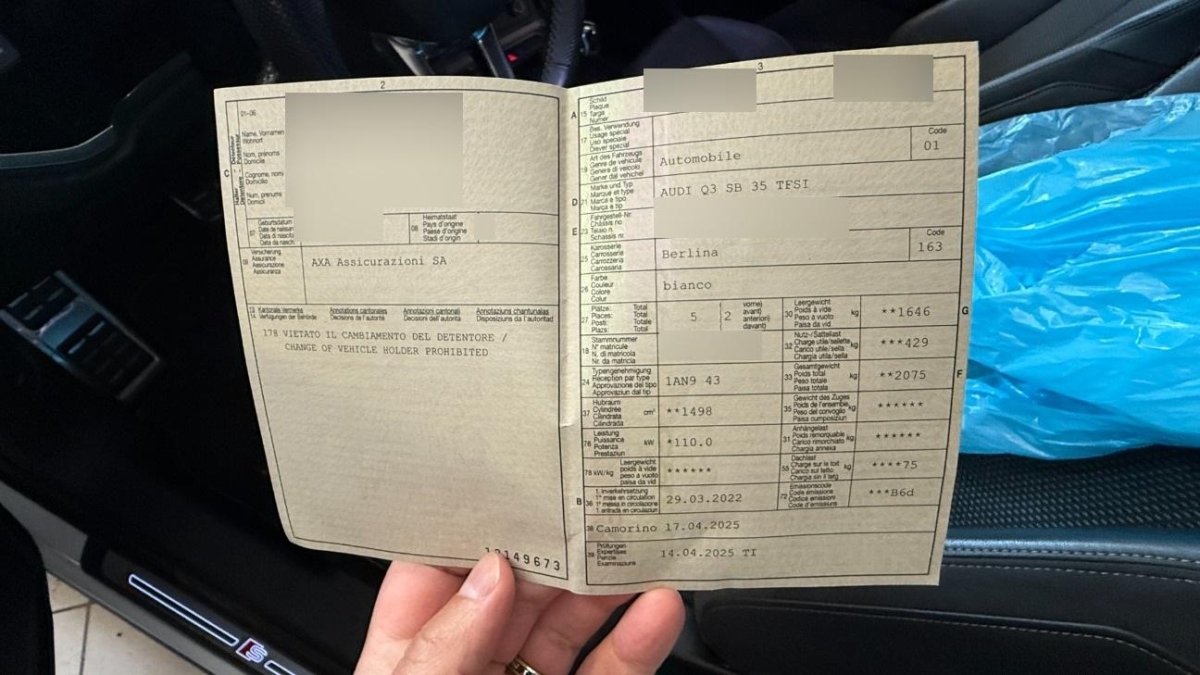 2
01-06
Name, Vornamen
Wohnort
Nom, prénoms
Domicile
Cognome, nomi
Domicilio
Num, prenums
Domicil
C
07
Geburtsdatum
Date de naissan
Data di nascita
Data da nasch
08
Heimatstaat
Pays d'origine
Paese d'origine
Stadi d'origin
09
Versicherung
Assurance
Assicurazione
Assicuranza
AXA Assicurazioni SA
13
14
Kantonale Vermerke
Verfügungen der Behörde
Annotations cantonales
Décisions de l'autorité
Annotazioni cantonali
Decisioni dell'autorità
Annotaziuns chantunalas
Disposiziuns da l'autoritad
178 VIETATO IL CAMBIAMENTO DEL DETENTORE /
CHANGE OF VEHICLE HOLDER PROHIBITED
149673
3
A 15
Schild
Plaque
Targa
Numer
17
Bes. Verwendung
Usage spécial
Uso speciale
Diever spezial
19
Art des Fahrzeugs
Genre de véhicule
Genere di veicolo
Gener dal vehichel
Automobile
Code
01
D 21
Marke und Typ
Marque et type
Marca e tipo
Marca e tip
AUDI Q3 SB 35 TFSI
E 23
Fahrgestell-Nr.
Châssis no
Telaio n.
Schassis nr.
25
Karosserie
Carrosserie
Carrozzeria
Carossaria
Berlina
Code
163
26
Farbe
Couleur
Colore
Colur
bianco
27
Plätze:
Places:
Posti:
Plazs:
Total
Total
Totale
Total
5
2
vorne)
avant)
anteriori)
davant)
30
Leergewicht
Poids à vide
Peso a vuoto
Paisa da vid
kg
**1646
G
18
Stammnummer
N° matricule
N. di matricola
Nr. da matricla
32
Nutz-/Sattellast
Charge utile/sellette
Carico utile/sella
Chargia utila/sella
kg
***429
24
Typengenehmigung
Réception par type
Approvazione del tipo
Approvaziun dal tip
1AN9 43
33
Gesamtgewicht
Poids total
Peso totale
Paisa totala
kg
**2075
F
37
Hubraum
Cylindrée
Cilindrata
Cilindrada
cm³
**1498
35
Gewicht des Zuges
Poids de l'ensemble
Peso del convoglio
Paisa cumposiziun
kg
******
76
Leistung
Puissance
Potenza
Prestaziun
kW
*110.0
31
Anhängelast
Poids remorquable
Carico rimorchiato
Chargia annexa
kg
******
78 kW/kg
Leergewicht
poids à vide
peso a vuoto
paisa da vid
******
55
Dachlast
Charge sur le toit
Carico sul tetto
Chargia sin il tetg
kg
****75
B 36
1. Inverkehrsetzung
1re mise en circulation
1a messa in circolazione
1. entrada en circulaziun
29.03.2022
72
Emissionscode
Code émissions
Codice emissioni
Code d'emissiuns
***B6d
38
Camorino 17.04.2025
39
Prüfungen
Expertises
Perizie
Examinaziuns
14.04.2025 TI
S